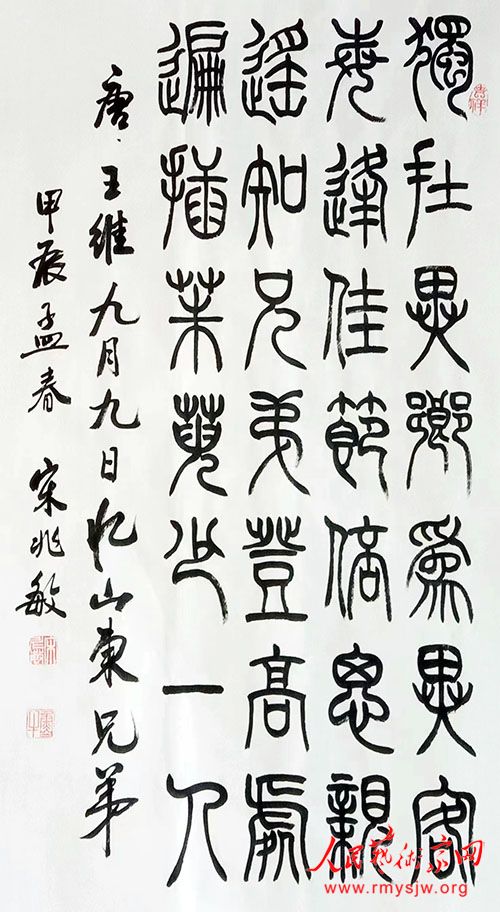 獨在異鄉為異客
每逢佳節倍思親
遙知兄弟登高處
遍插茱萸少一人
唐·王維九月九日憶山東兄弟
甲辰孟春 宋兆敏
人民藝術家网
www.rmysjw.org